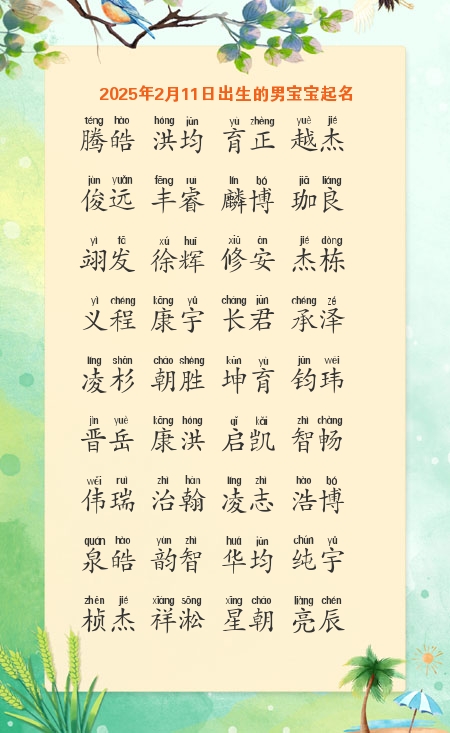 2025年2月11日出生的男宝宝起名
téng hào hóng jūn yù zhèng yuè jié
腾皓 洪均 育正 越杰
jùn yuǎn fēng ruì lín bó jiā liáng
俊远 丰睿 麟博 珈良
yì fā xú huī xiū ān jié dòng
翊发 徐辉 修安 杰栋
yì chéng kāng yǔ cháng jūn chéng zé
义程 康宇 长君 承泽
líng shān cháo shèng kūn yù jūn wěi
凌杉 朝胜 坤育 钧玮
jìn yuè kāng hóng qǐ kǎi zhì chàng
晋岳 康洪 启凯 智畅
wěi ruì zhì hàn líng zhì hào bó
伟瑞 治翰 凌志 浩博
quán hào yùn zhì huá jūn chún yǔ
泉皓 韵智 华均 纯宇
zhēn jié xiáng sōng xīng cháo liàng chén
桢杰 祥淞 星朝 亮辰